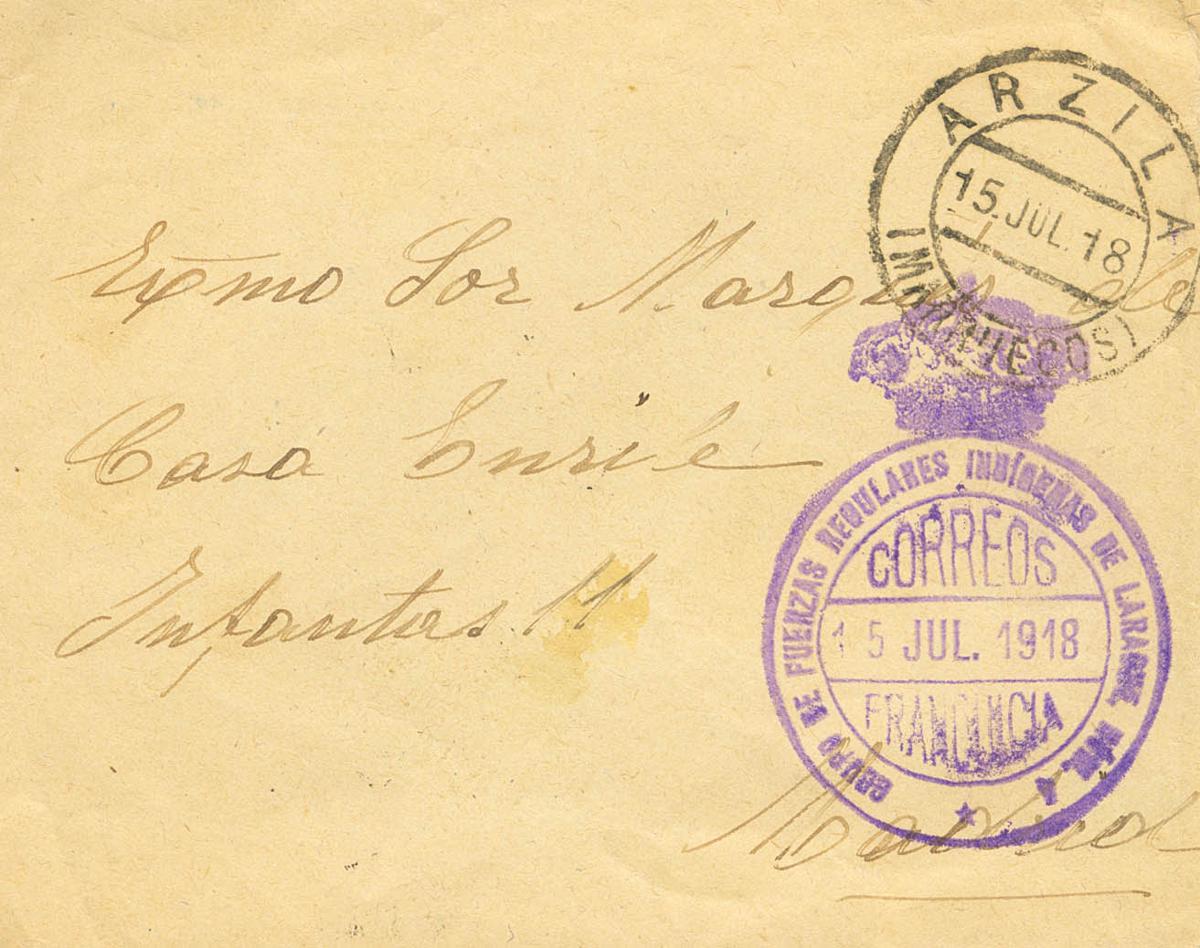 ARZILA
15.JUL.18
(MARRUECOS)
Exmo Sor Marques de
Casa Enrile
Infantas 11
Madrid
GRUPO DE FUERZAS REGULARES INDÍGENAS DE LARACHE, NÚM. 4
CORREOS
15 JUL. 1918
FRANQUICIA